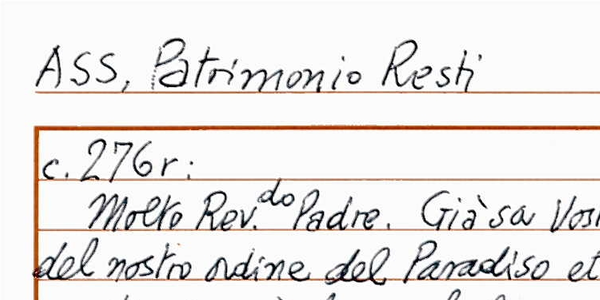 ASS, Patrimonio Resti
c. 276r:
Molto Rev.do Padre. Già sa
del nostro ordine del Paradiso et